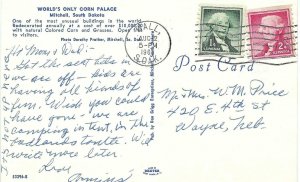 WORLD'S ONLY CORN PALACE
Mitchell, South Dakota
One of the most unusual buildings in the world.
Redecorated annually at a cost of over $10,000
with natural Colored Corn and Grasses. Open
visitors.
Photo Dorothy Prather, Mitchell, So. Dak.
WALL
AUG
5 PM
S. DAK.
2¢
Hi Mom & Dad:-
Got the seat
we are off - kids are
having all kinds of
fun. Wish you could
have gone - we are
camping in tent, in the
badlands tonite. We
write more later.
Love
It's hot up here
Post Card
Mr & Mrs. W M Price
420 E. 4th St
Wayne, Nebr.
DEXTER